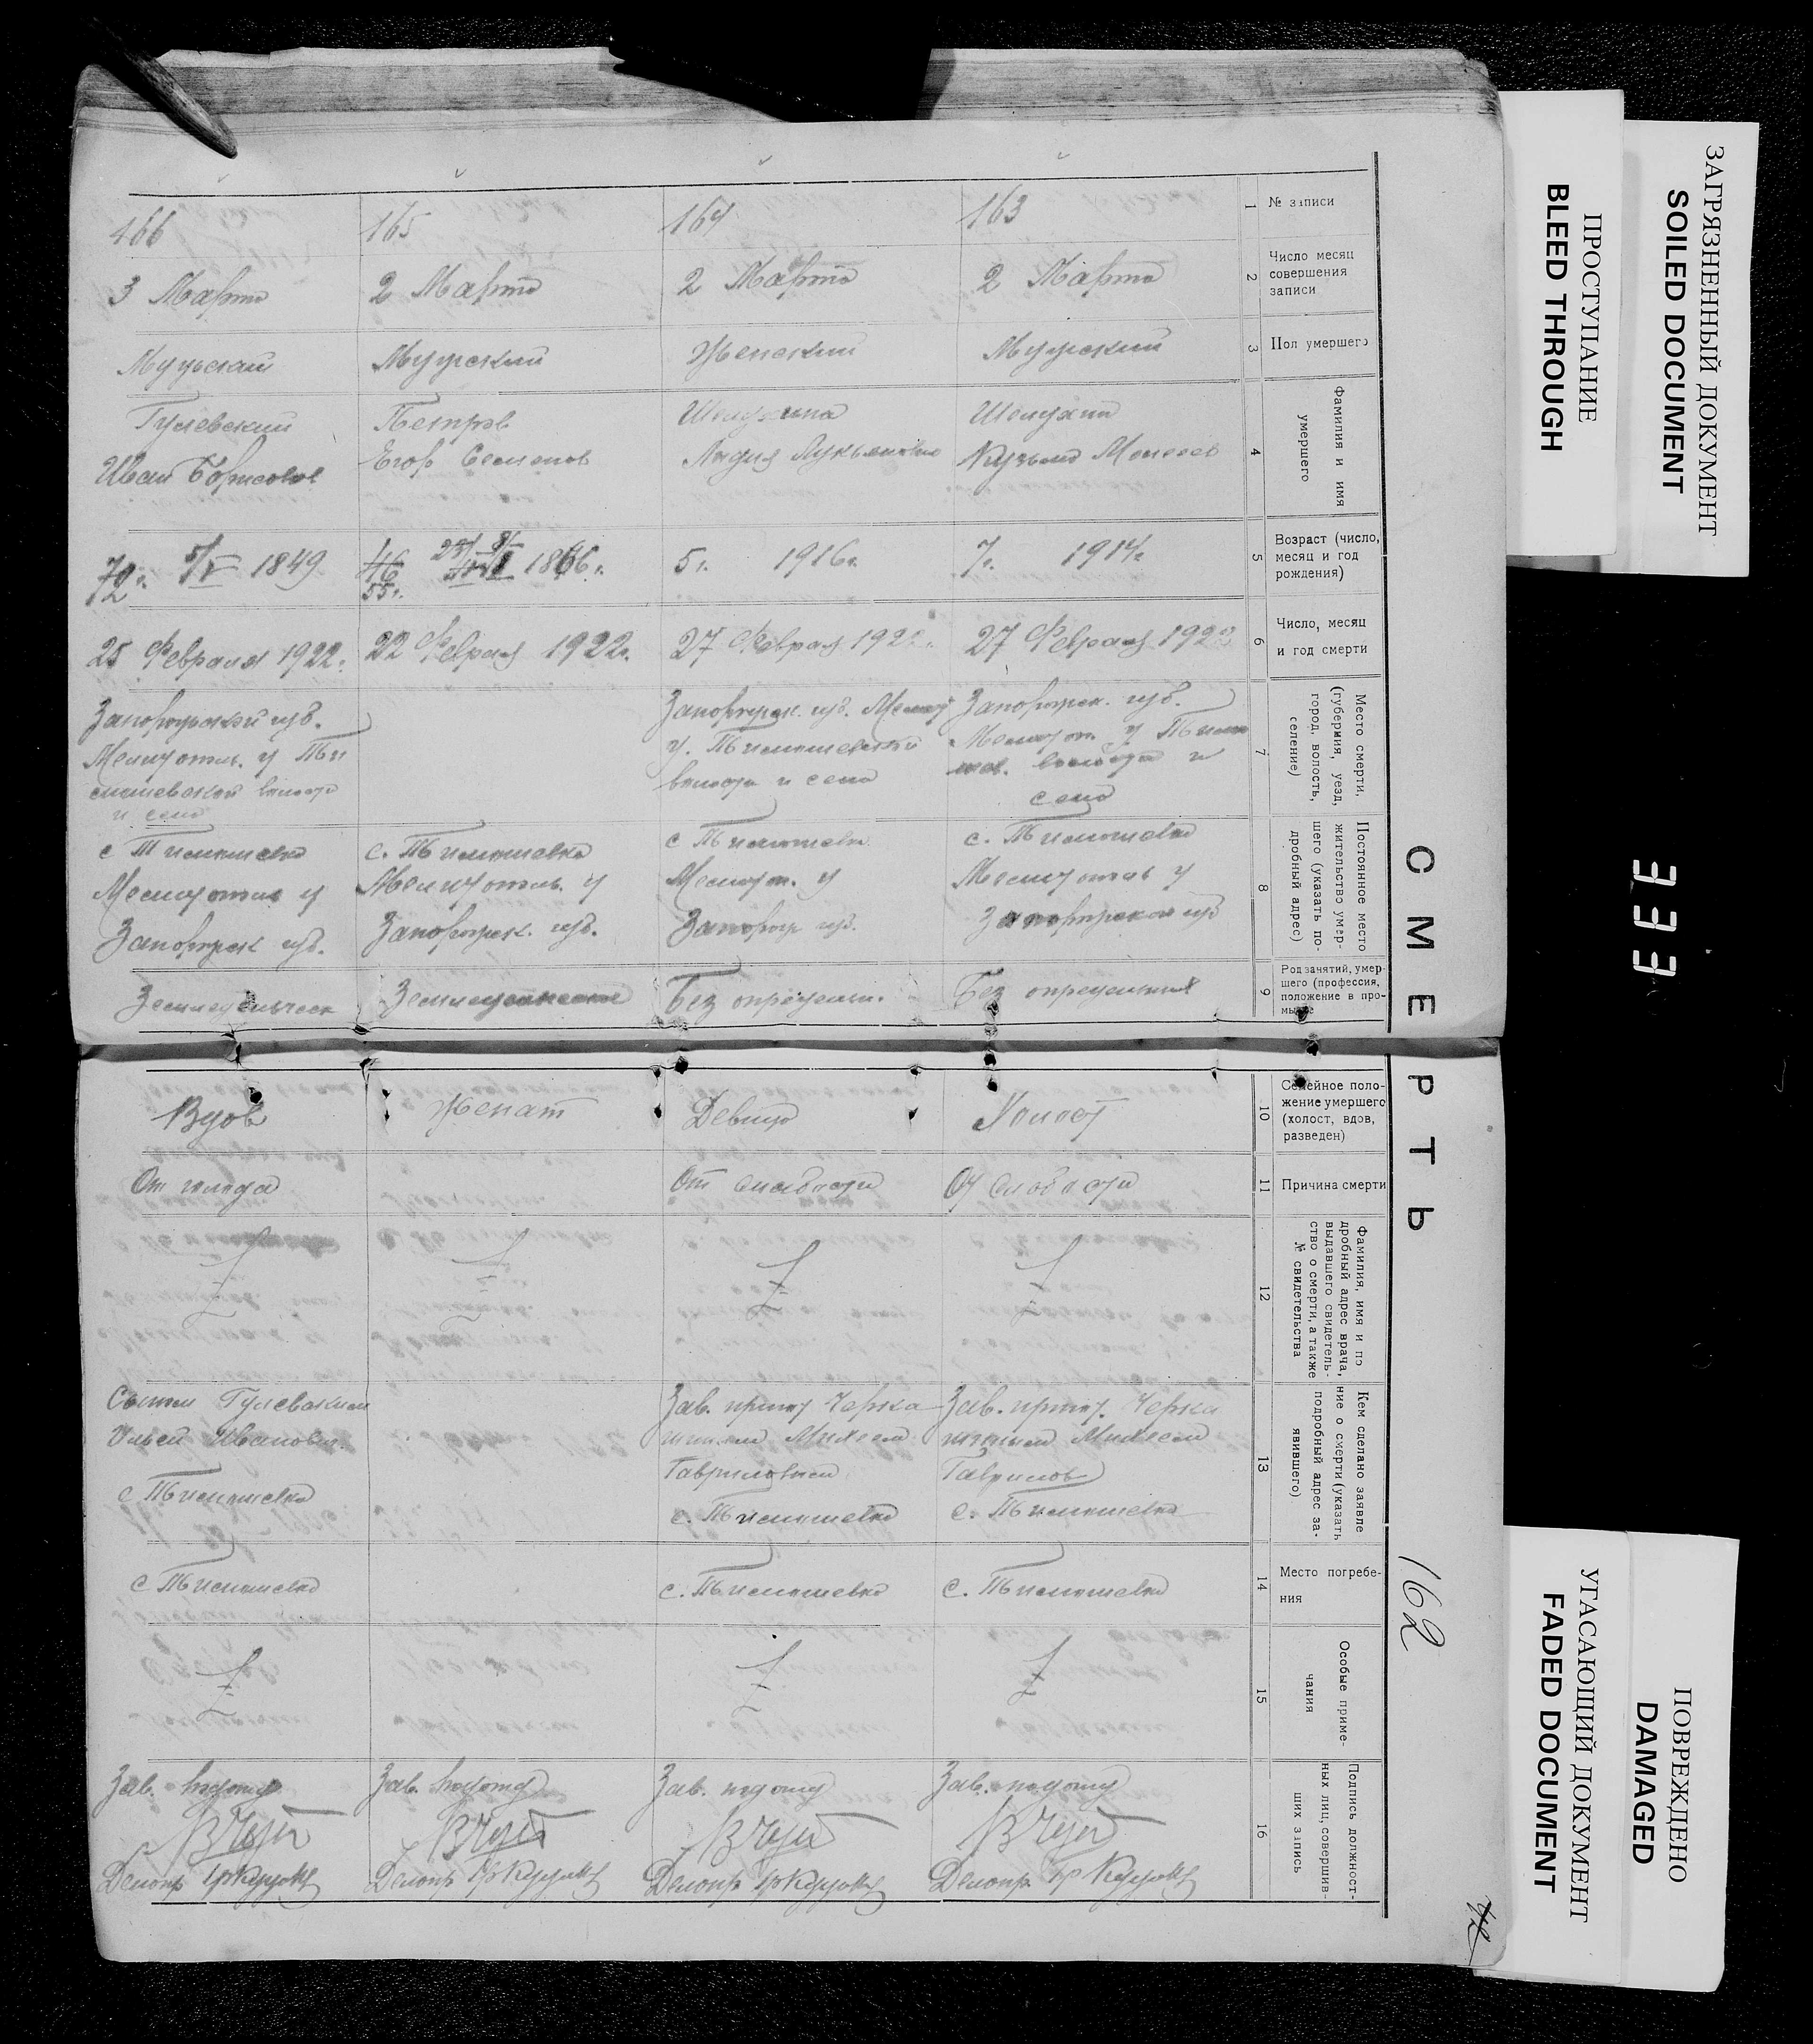 СМЕРТЬ
162
№ записи
1
163
164
165
166
Число месяц
совершения
записи
2
2 Марта
2 Марта
2 Марта
3 Марта
Пол умершего
3
Мужской
Женский
Мужской
Мужской
Фамилия и имя
умершего
4
Шелухин
Кузьма Моисеев
Шелухина
Лидия Лукьяновна
Петров
Егор Семенов
Гулевский
Иван Борисович
Возраст (число,
месяц и год
рождения)
5
7 г. 1914 г.
5 г. 1916 г.
55 г. 1866 г.
72 г. 5/V 1849
Число, месяц
и год смерти
6
27 Февраля 1922
27 Февраля 1922 г.
22 Февраля 1922 г.
25 Февраля 1922 г.
Место смерти,
(губерния, уезд,
город, волость,
селение)
7
Запорожск. губ.
Мелитоп. у Тимо
шев. волости и
село
Запорожск. губ. Мелит
у. Тимошевской
волости и село
Запорожской губ.
Мелитопол. у Ти
мошевской волости
и село
Постоянное место
жительство умер-
шего (указать по-
дробный адрес)
8
с. Тимошевка
Мелитопол у
Запорожской губ
с Тимошевка
Мелитоп. у
Запорож губ.
с. Тимошевка
Мелитопол. у
Запорожск. губ.
с Тимошевка
Мелитопол у
Запорожск губ.
Род занятий, умер-
шего (профессия,
положение в про-
мысле
9
Без определения
Без определен.
Земледельческ
Семейное поло-
жение умершего
(холост, вдов,
разведен)
10
Холост
Девица
Женат
Вдов
Причина смерти
11
От слабости
От слабости
От голода
Фамилия, имя и по
дробный адрес врача,
выдавшего свидетель-
ство о смерти, а также
№ свидетельства
12
Кем сделано заявле
ние о смерти (указать
подробный адрес за-
явившего)
13
Зав. приют. Черка
шиным Михеем
Гаврилов
с. Тимошевка
Зав. приют Черка
шиным Михеем
Гавриловым
с. Тимошевка
Сыном Гулевским
Ильей Иванович.
с Тимошевка
Место погребе-
ния
14
с. Тимошевка
с. Тимошевка
с Тимошевка
Особые приме-
чания
15
Подпись должност-
ных лиц, совершив-
ших запись
16
Зав. подотд
Делопр
Зав. подотд
Делопр
Зав. подотд
Делопр
Зав. подотд
Делопр
ЗАГРЯЗНЕННЫЙ ДОКУМЕНТ
SOILED DOCUMENT
ПРОСТУПАНИЕ
BLEED THROUGH
333
ПОВРЕЖДЕНО
DAMAGED
УГАСАЮЩИЙ ДОКУМЕНТ
FADED DOCUMENT